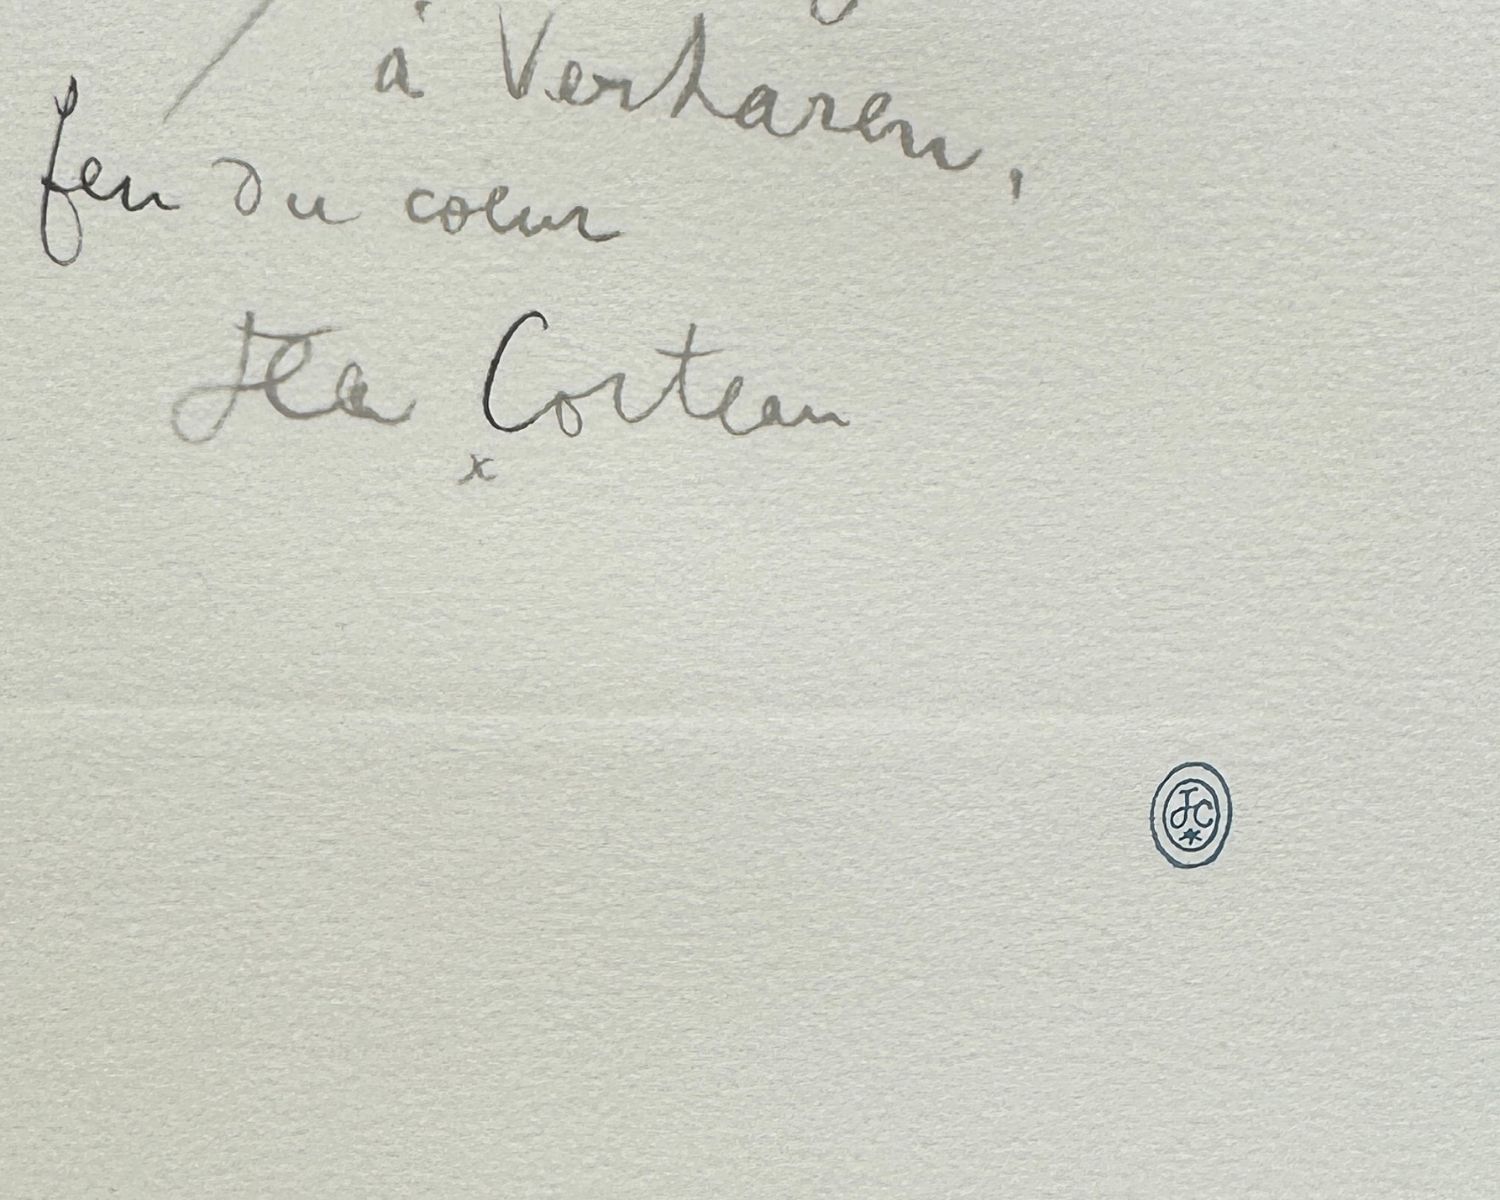 à Verharen,
feu du coeur
Jea Cocteau
x
JC